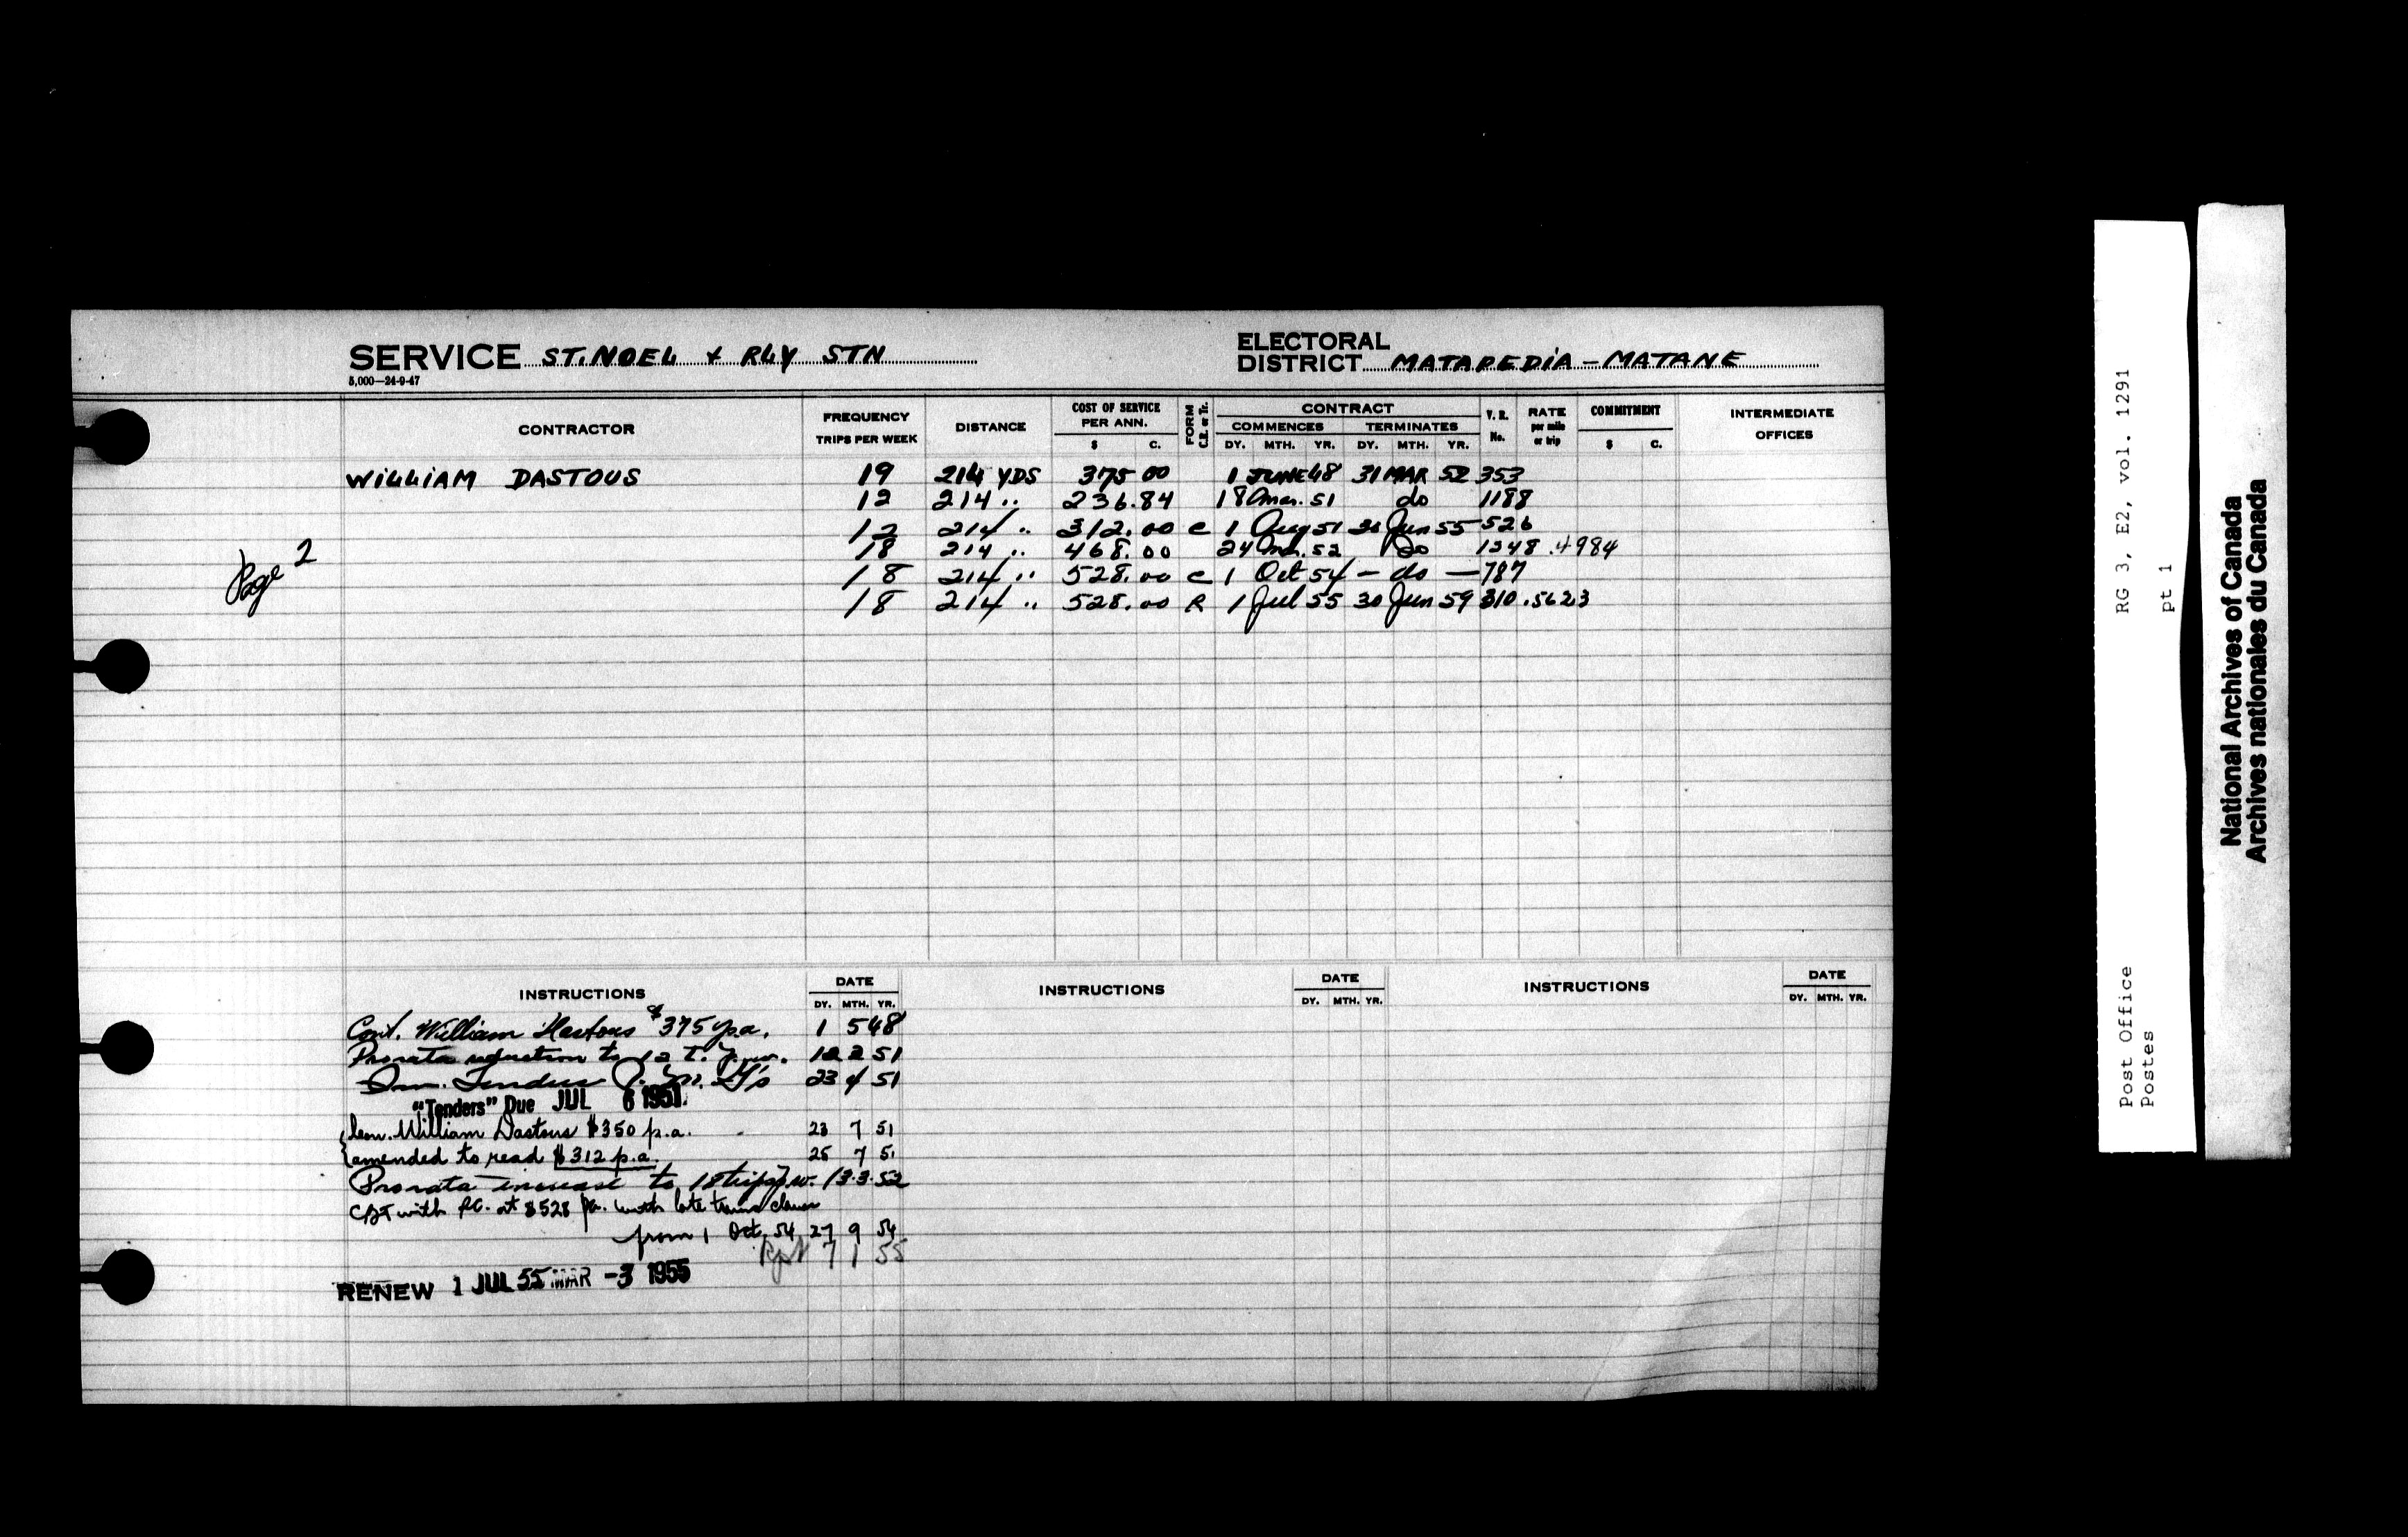 SERVICE ST. NOEL & RLY STN
5,000—24-9-47
ELECTORAL
DISTRICT MATAPEDIA - MATANE
CONTRACTOR
FREQUENCY
TRIPS PER WEEK
DISTANCE
COST OF SERVICE
PER ANN.
$ C.
FORM
C.R. or Tr.
CONTRACT
COMMENCES TERMINATES
DY. MTH. YR. DY. MTH. YR.
V. R.
No.
RATE
per mile
or trip
COMMITMENT
$ C.
INTERMEDIATE
OFFICES
WILLIAM DASTOUS 19 214 YDS 375 00 1 JUNE 48 31 MAR 52 353
12 214 " 236.84 18 Mar. 51 do 1188
12 214 " 312.00 C 1 Aug 51 30 Jun 55 526
18 214 " 468.00 24 Mar. 52 Do 1248 .4984
Page 2
18 214 " 528.00 C 1 Oct 54 - do - 787
18 214 " 528.00 R 1 Jul 55 30 Jun 59 310 .5623
INSTRUCTIONS DATE INSTRUCTIONS DATE INSTRUCTIONS DATE
DY. MTH. YR. DY. MTH. YR. DY. MTH. YR.
Cont. William Dastous $375 p.a. 1 5 48
Prorata reduction to 12 t. p.w. 12 2 51
Tenders 23 4 51
"Tenders" Due JUL 6 1951
William Dastous $350 p.a. 23 7 51
amended to read $312 p.a. 25 7 51
Prorata increase to 18 trips p.w. 13.3.52
with at $528 pa. with late trains clause
from 1 Oct. 54 27 9 54
Rpt 7 1 55
RENEW 1 JUL 55 MAR -3 1955
RG 3, E2, vol. 1291
pt 1
Post Office
Postes
National Archives of Canada
Archives nationales du Canada